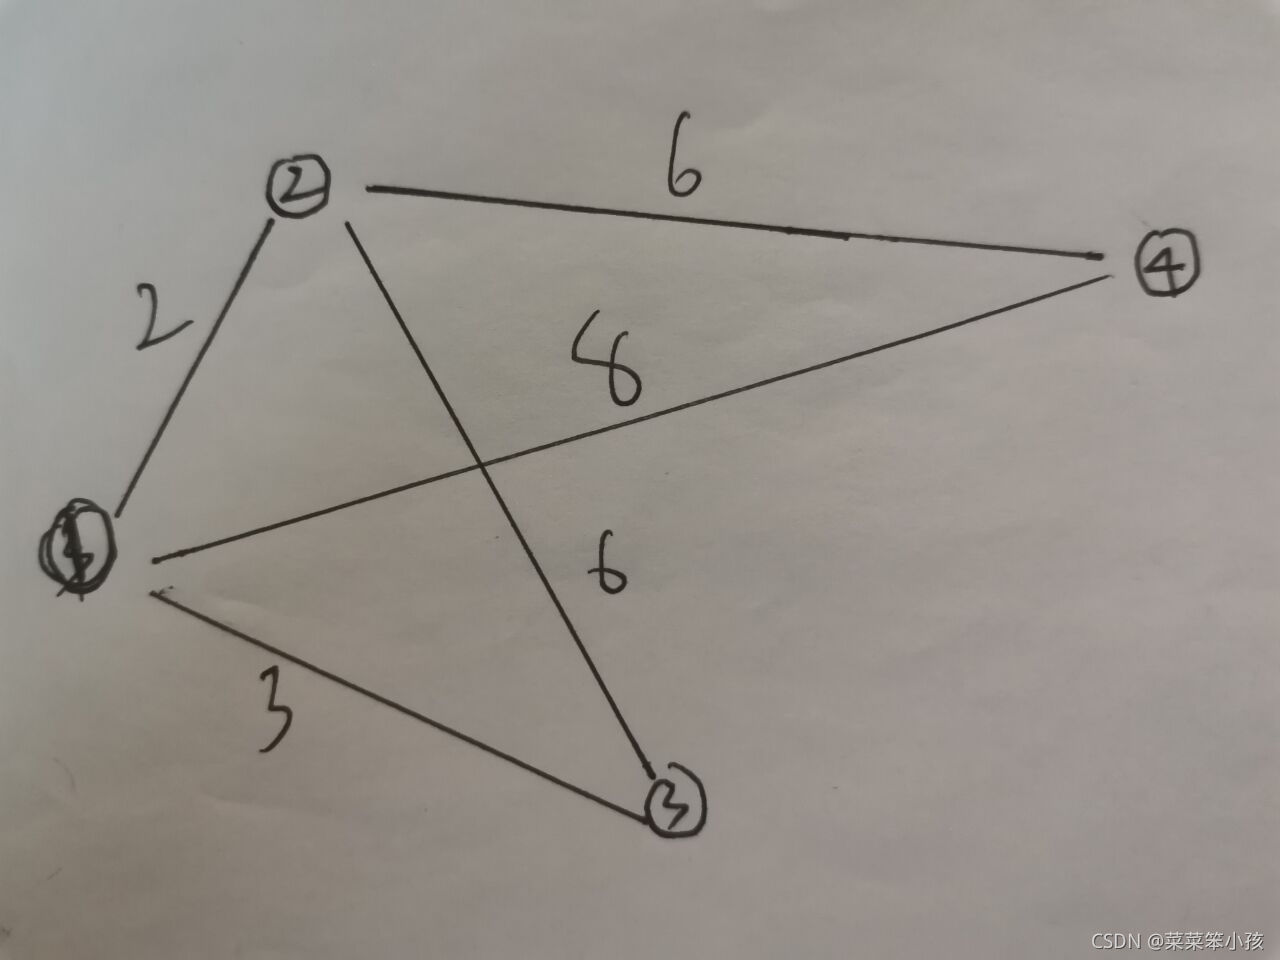 6
2
4
2
8
1
6
3
3
CSDN @菜菜笨小孩